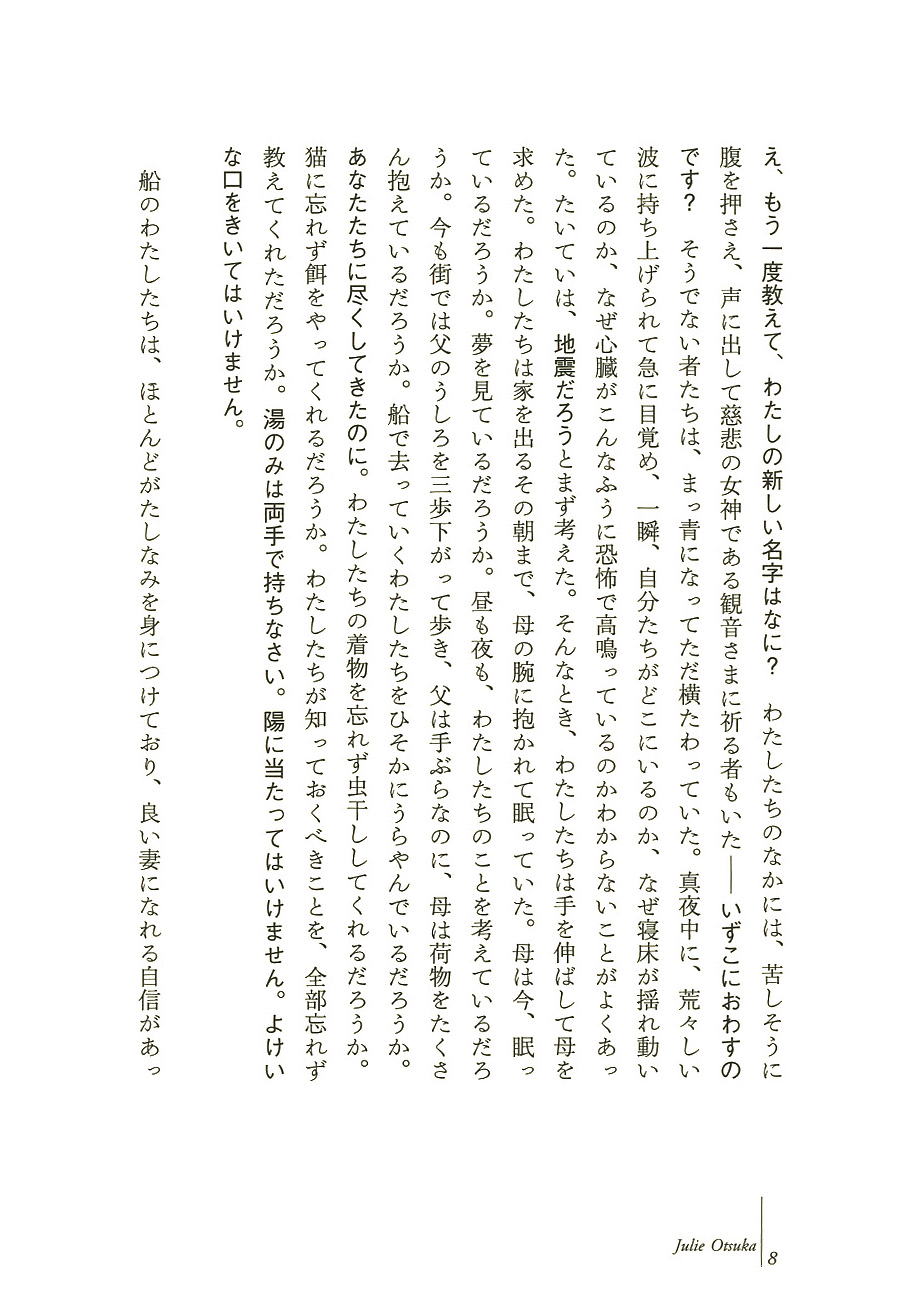 え、もう一度教えて、わたしの新しい名字はなに?　わたしたちのなかには、苦しそうに
腹を押さえ、声に出して慈悲の女神である観音さまに祈る者もいた――いずこにおわすの
です?　そうでない者たちは、まっ青になってただ横たわっていた。真夜中に、荒々しい
波に持ち上げられて急に目覚め、一瞬、自分たちがどこにいるのか、なぜ寝床が揺れ動い
ているのか、なぜ心臓がこんなふうに恐怖で高鳴っているのかわからないことがよくあっ
た。たいていは、地震だろうとまず考えた。そんなとき、わたしたちは手を伸ばして母を
求めた。わたしたちは家を出るその朝まで、母の腕に抱かれて眠っていた。母は今、眠っ
ているだろうか。夢を見ているだろうか。昼も夜も、わたしたちのことを考えているだろ
うか。今も街では父のうしろを三歩下がって歩き、父は手ぶらなのに、母は荷物をたくさ
ん抱えているだろうか。船で去っていくわたしたちをひそかにうらやんでいるだろうか。
あなたたちに尽くしてきたのに。わたしたちの着物を忘れず虫干ししてくれるだろうか。
猫に忘れず餌をやってくれるだろうか。わたしたちが知っておくべきことを、全部忘れず
教えてくれただろうか。湯のみは両手で持ちなさい。陽に当たってはいけません。よけい
な口をきいてはいけません。
船のわたしたちは、ほとんどがたしなみを身につけており、良い妻になれる自信があっ
Julie Otsuka
8